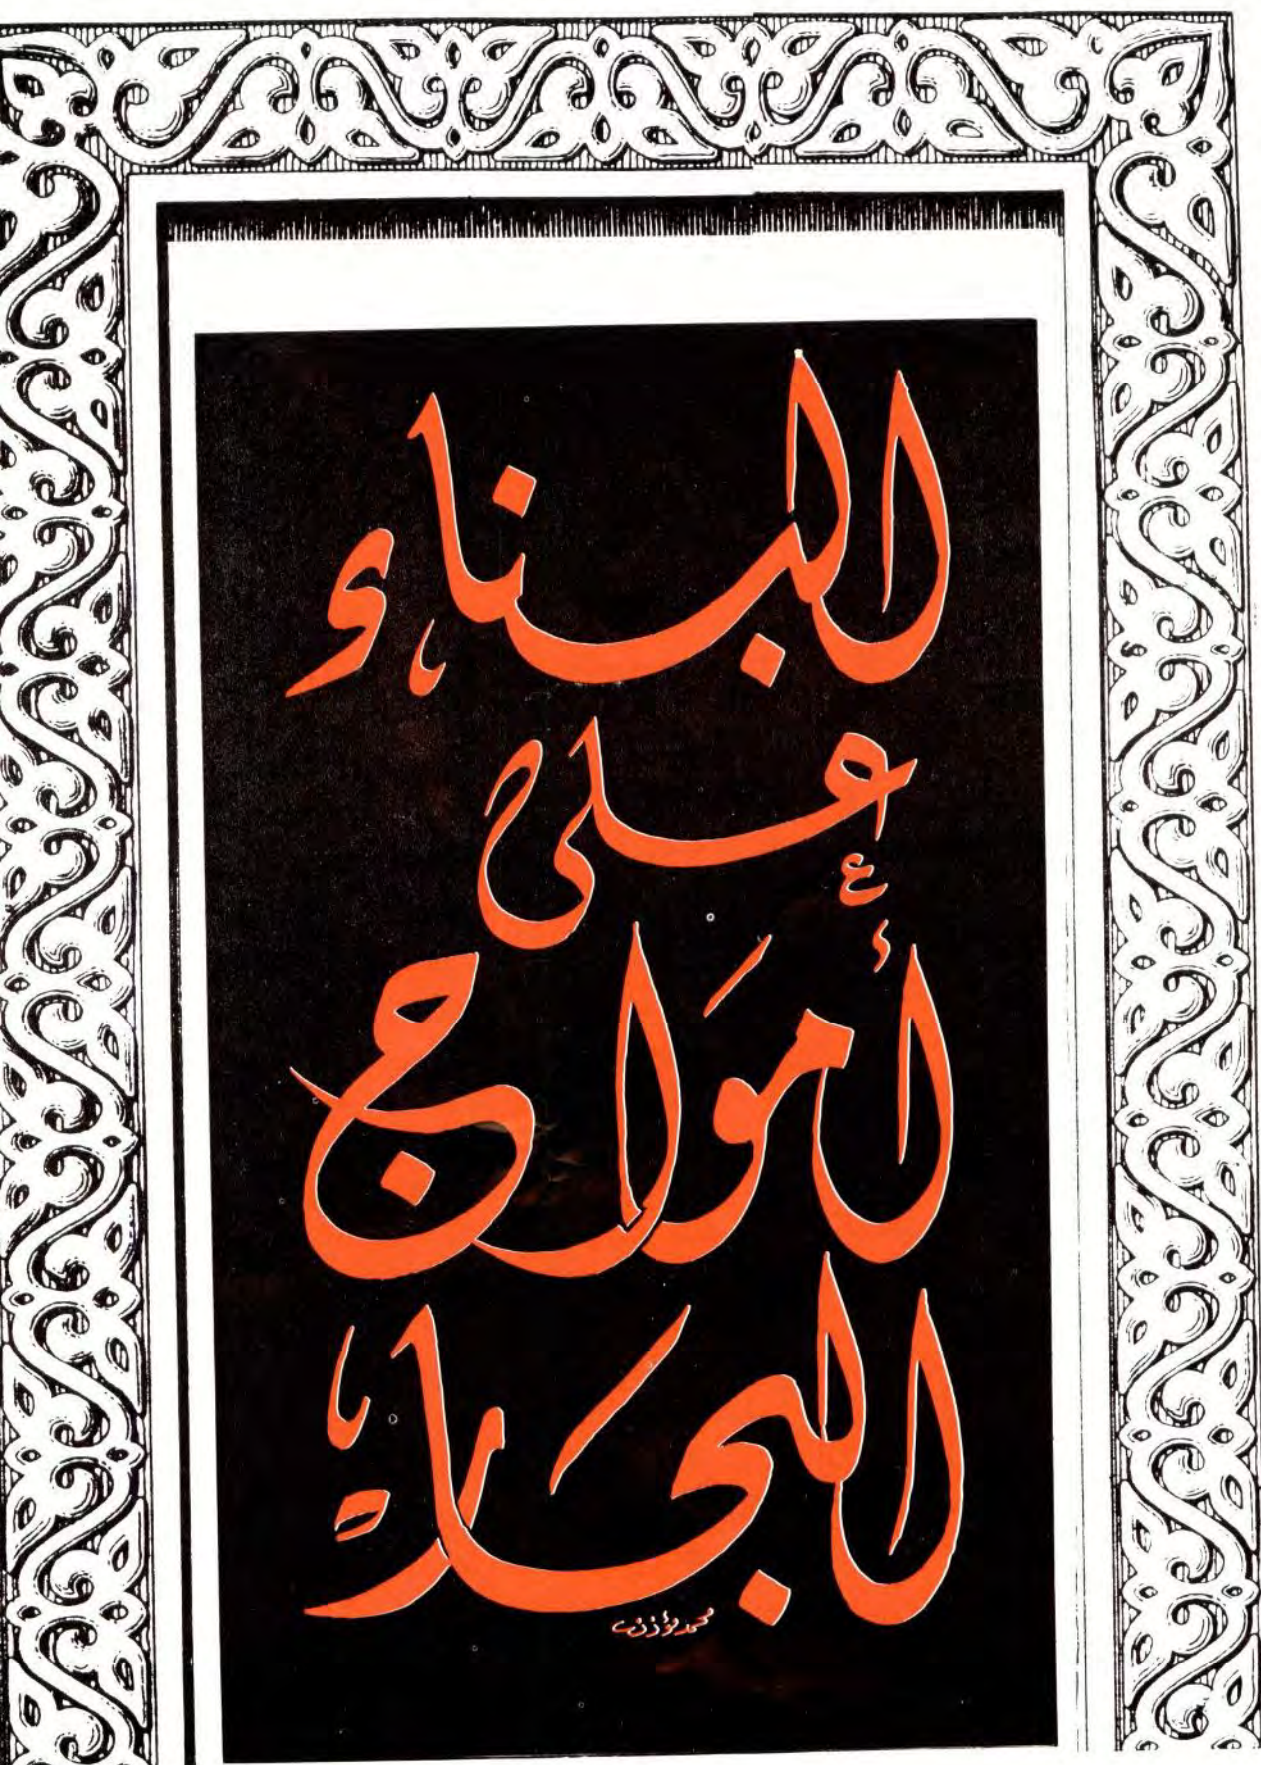 البناء
على
أمواج
البحار
محمد مؤذن